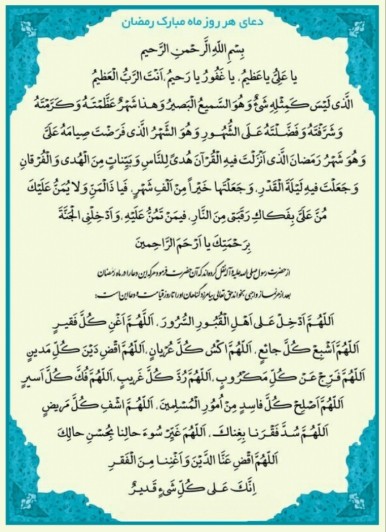 دعای هر روز ماه مبارک رمضان
بِسْمِ اللهِ الرَّحْمنِ الرَّحیمِ
یا عَلِیُّ یا عَظیمُ، یا غَفُورُ یا رَحیمُ، اَنْتَ الرَّبُّ الْعَظیمُ
الَّذی لَیْسَ کَمِثْلِهِ شَیْءٌ وَ هُوَ السَّمیعُ الْبَصیرُ وَ هذا شَهْرٌ عَظَّمْتَهُ وَ کَرَّمْتَهُ
وَ شَرَّفْتَهُ وَ فَضَّلْتَهُ عَلَی الشُّهُورِ وَ هُوَ الشَّهْرُ الَّذی فَرَضْتَ صِیامَهُ عَلَیَّ
وَ هُوَ شَهْرُ رَمَضانَ الَّذی اَنْزَلْتَ فیهِ الْقُرْآنَ هُدیً لِلنّاسِ وَ بَیِّناتٍ مِنَ الْهُدی وَ الْفُرْقانِ
وَ جَعَلْتَ فیهِ لَیْلَةَ الْقَدْرِ، وَ جَعَلْتَها خَیْراً مِنْ اَلْفِ شَهْرٍ، فَیا ذَالْمَنِّ وَ لا یُمَنُّ عَلَیْکَ
مُنَّ عَلَیَّ بِفَکاکِ رَقَبَتی مِنَ النّارِ، فیمَنْ تَمُنُّ عَلَیْهِ، وَ اَدْخِلْنِی الْجَنَّةَ
بِرَحْمَتِکَ یا اَرْحَمَ الرّاحِمینَ
از حضرت رسول صلی الله علیه و آله نقل کرده‌اند که آن حضرت فرمود هر که این دعا را در ماه رمضان
بعد از هر نماز واجبی بخواند حق تعالی بیامرزد گناهان او را تا روز قیامت و دعا این است:
اَللّهُمَّ اَدْخِلْ عَلی اَهْلِ الْقُبُورِ السُّرُورَ، اَللّهُمَّ اَغْنِ کُلَّ فَقیرٍ
اَللّهُمَّ اَشْبِعْ کُلَّ جائِعٍ، اَللّهُمَّ اکْسُ کُلَّ عُرْیانٍ، اَللّهُمَّ اقْضِ دَیْنَ کُلِّ مَدینٍ
اَللّهُمَّ فَرِّجْ عَنْ کُلِّ مَکْرُوبٍ، اَللّهُمَّ رُدَّ کُلَّ غَریبٍ، اَللّهُمَّ فُکَّ کُلَّ اَسیرٍ
اَللّهُمَّ اَصْلِحْ کُلَّ فاسِدٍ مِنْ اُمُورِ الْمُسْلِمینَ، اَللّهُمَّ اشْفِ کُلَّ مَریضٍ
اَللّهُمَّ سُدَّ فَقْرَنا بِغِناکَ، اَللّهُمَّ غَیِّرْ سُوءَ حالِنا بِحُسْنِ حالِکَ
اَللّهُمَّ اقْضِ عَنَّا الدَّیْنَ وَ اَغْنِنا مِنَ الْفَقْرِ
اِنَّکَ عَلی کُلِّ شَیْءٍ قَدیرٌ